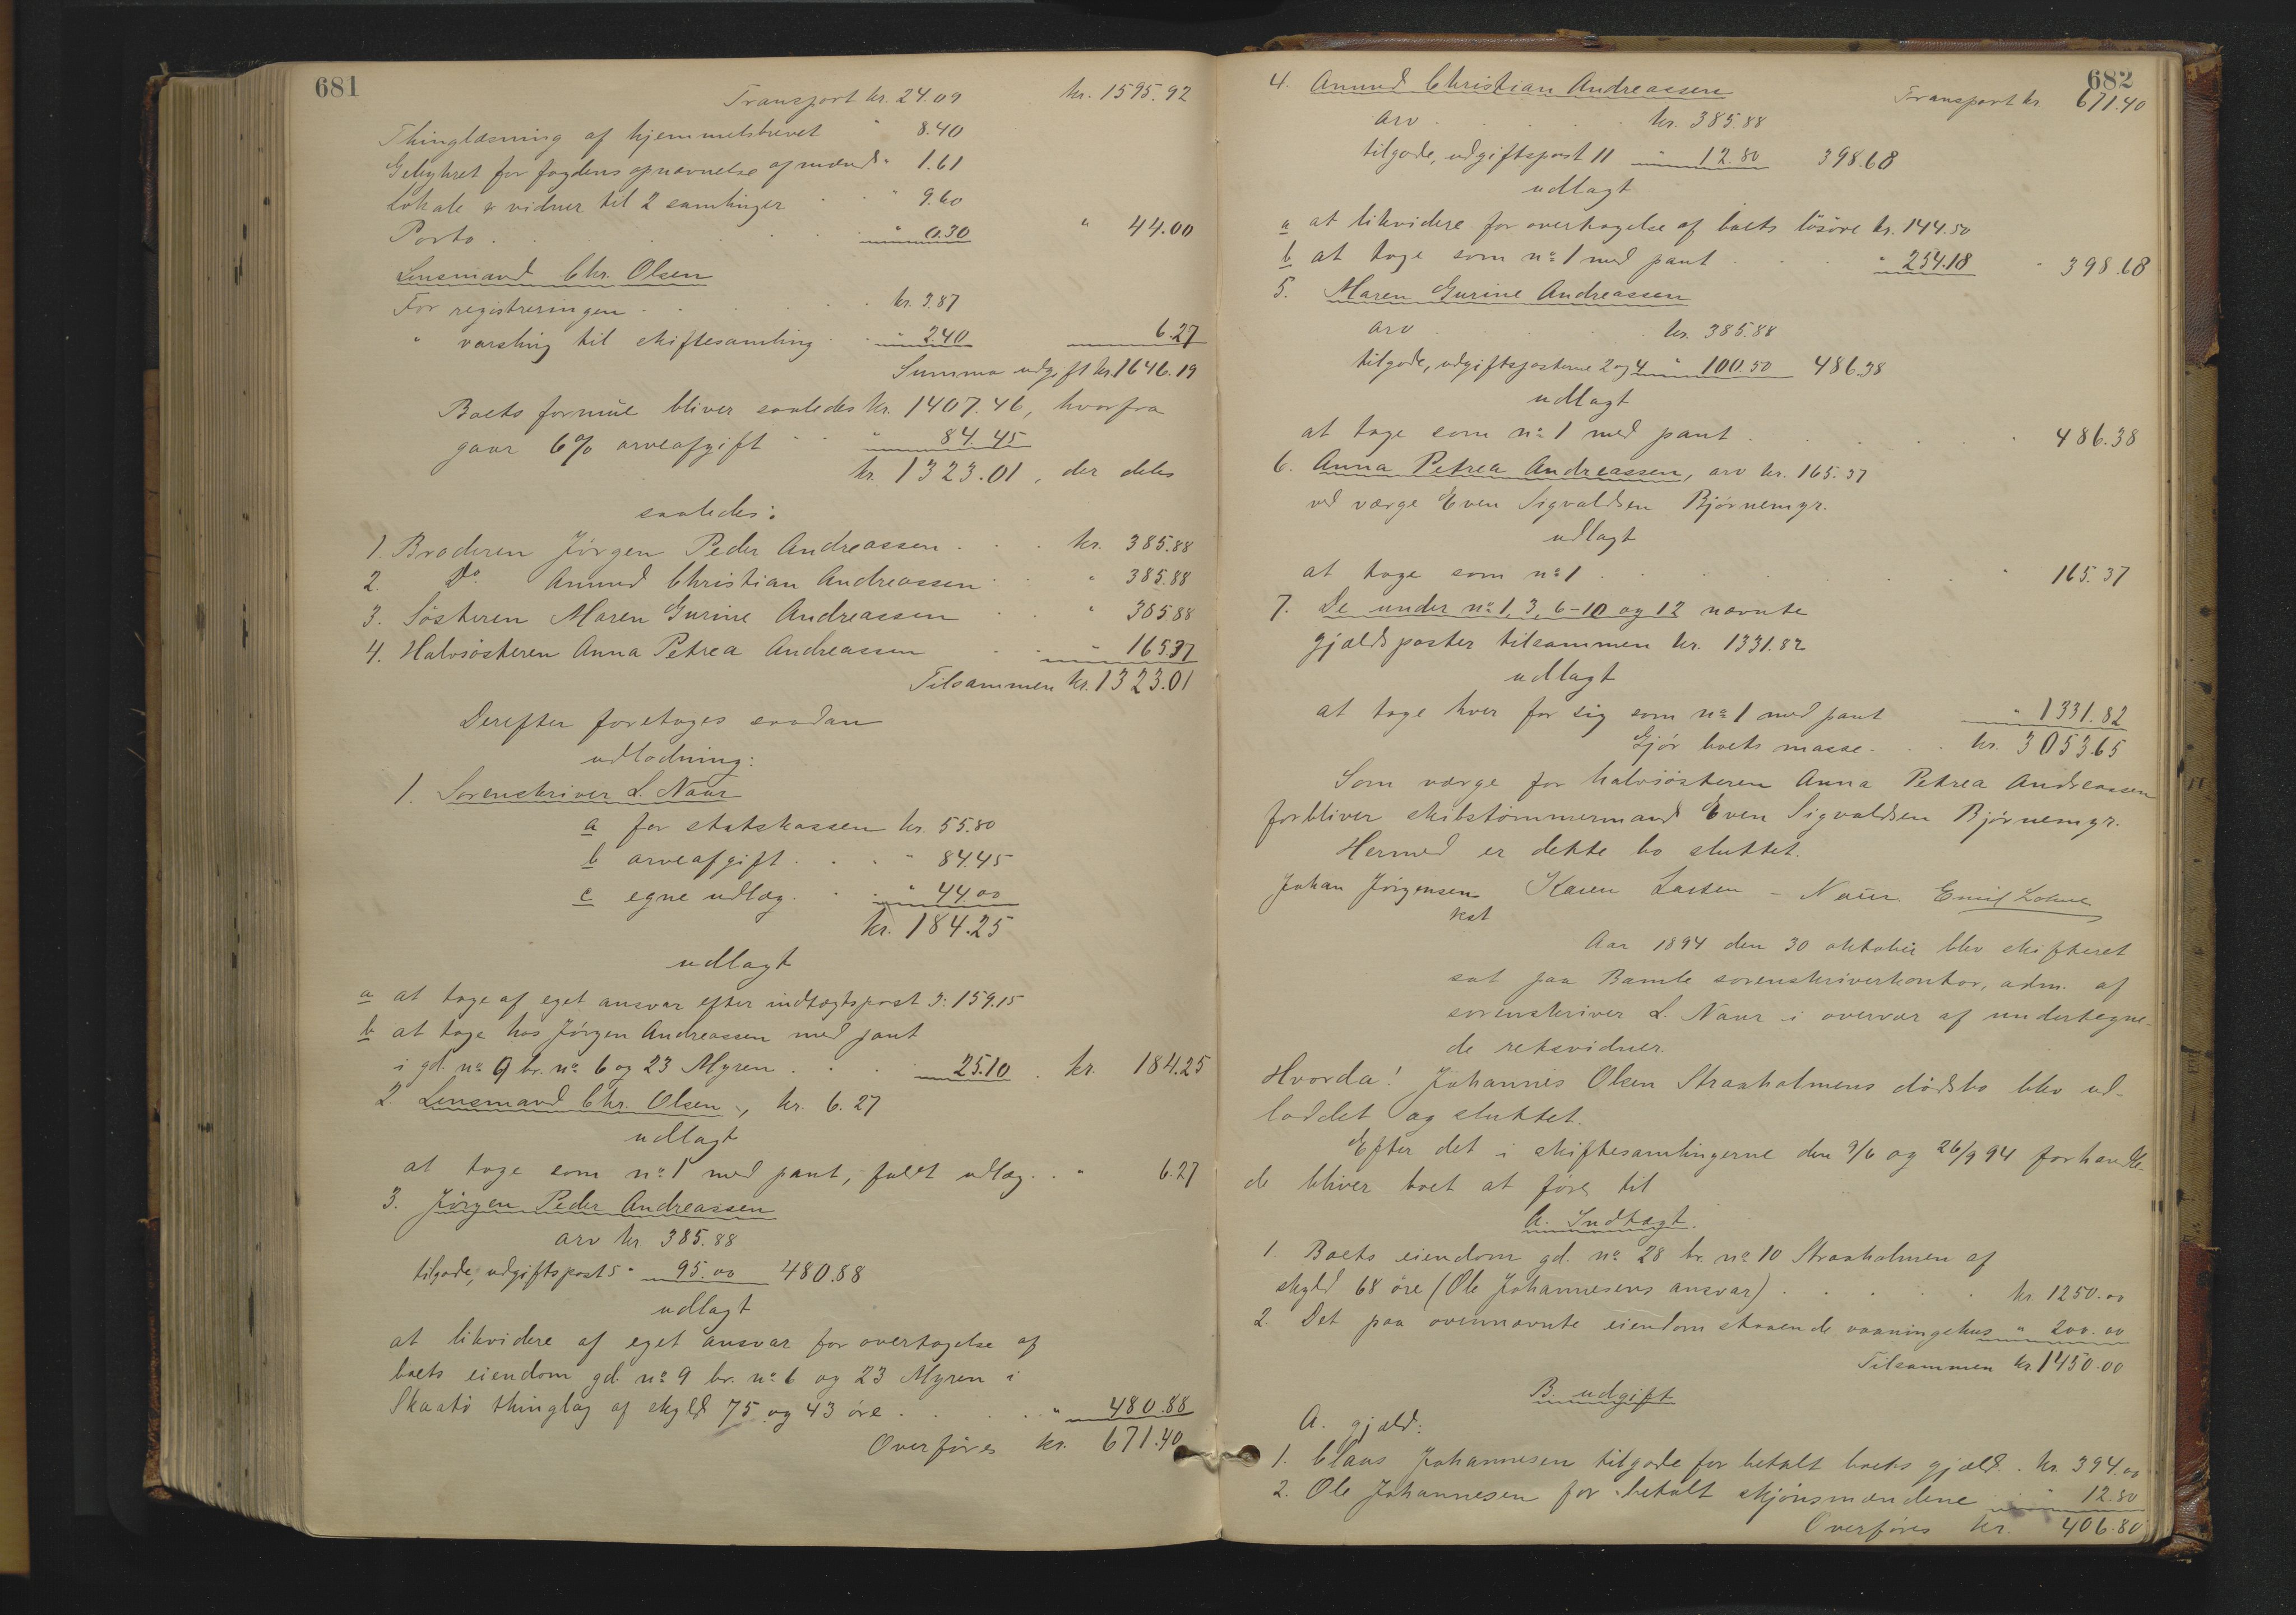 681
Transport kr. 24.09 kr. 1595.92
Thinglæsning af hjemmelsbrevet " 8.40
Gebyhret for fogdens opnævnelse af mænd " 1.61
Lokale & vidner til 2 samlinger " 9.60
Porto " 0.30 " 44.00
Lensmand Chr. Olsen
For registreringen kr. 3.87
" varsling til skiftesamling " 2.40 6.27
Summa udgift kr. 1646.19
Boets formue bliver saaledes kr. 1407.46, hvorfra
gaar 6% arveafgift " 84.45
kr. 1323.01, der deles
saaledes:
1. Broderen Jörgen Peder Andreassen kr. 385.88
2. Do. Amund Christian Andreassen " 385.88
3. Sösteren Maren Gurine Andreassen " 385.88
4. Halvsösteren Anna Petrea Andreassen " 165.37
Tilsammen kr. 1323.01
Derefter foretoges saadan
udlodning:
1. Sorenskriver L. Naur
a for statskassen kr. 55.80
b arveafgift " 84.45
c egne udlæg " 44.00
kr. 184.25
udlagt
a at tage af eget ansvar efter indtægtspost 3: 159.15
b at tage hos Jörgen Andreassen med pant
i gd. no 9 br. no 6 og 23 Myren 25.10 kr. 184.25
2. Lensmand Chr. Olsen, kr. 6.27
udlagt
at tage som no 1 med pant, fuldt udlæg " 6.27
3. Jörgen Peder Andreassen
arv kr. 385.88
tilgode, udgiftspost 5 " 95.00 480.88
udlagt
at likvidere af eget ansvar for overtagelse af
boets eiendom gd. no 9 br. no 6 og 23 Myren i
Skaatö thinglag af skyld 75 og 43 öre " 480.88
Overföres kr. 671.40
682
4. Amund Christian Andreassen Transport kr. 671.40
arv kr. 385.88
tilgode, udgiftspost 11 " 12.80 398.68
udlagt
a at likvidere for overtagelse af boets lösöre kr. 144.50
b at tage som no 1 med pant " 254.18 " 398.68
5. Maren Gurine Andreassen
arv kr. 385.88
tilgode, udgiftsposterne 2 og 4 " 100.50 486.38
udlagt
at tage som no 1 med pant " 486.38
6. Anna Petrea Andreassen, arv kr. 165.37
ved værge Even Sigvaldsen Björnemyr.
udlagt
at tage som no 1 " 165.37
7. De under no 1, 3, 6-10 og 12 nævnte
gjældsposter tilsammen kr. 1331.82
udlagt
at tage hver for sig som no 1 med pant " 1331.82
Gjör boets masse kr. 3053.65
Som værge for halvsösteren Anna Petrea Andreassen
forbliver skibstömmermand Even Sigvaldsen Björnemyr.
Hermed er dette bo sluttet.
Johan Jörgensen Karen Larsen - Naur. Emil
kst
Aar 1894 den 30 oktober blev skifteret
sat paa Bamle sorenskriverkontor, adm. af
sorenskriver L. Naur i overvær af undertegne-
de retsvidner.
Hvorda! Johannes Olsen Straaholmens dödsbo blev ud-
loddet og sluttet.
Efter det i skiftesamlingerne den 9/6 og 26/9 94 forhandle-
de bliver boet at före til
A. Indtægt.
1. Boets eiendom gd. no 28 br. no 10 Straaholmen af
skyld 68 öre (Ole Johannesens ansvar) kr. 1250.00
2. Det paa ovennævnte eiendom staaende vaaningshus " 200.00
Tilsammen kr. 1450.00
B. udgift
A. gjæld:
1. Claus Johannesen tilgode for betalt boets gjæld kr. 394.00
2. Ole Johannesen for betalt skjönsmændene " 12.80
Overföres kr. 406.80